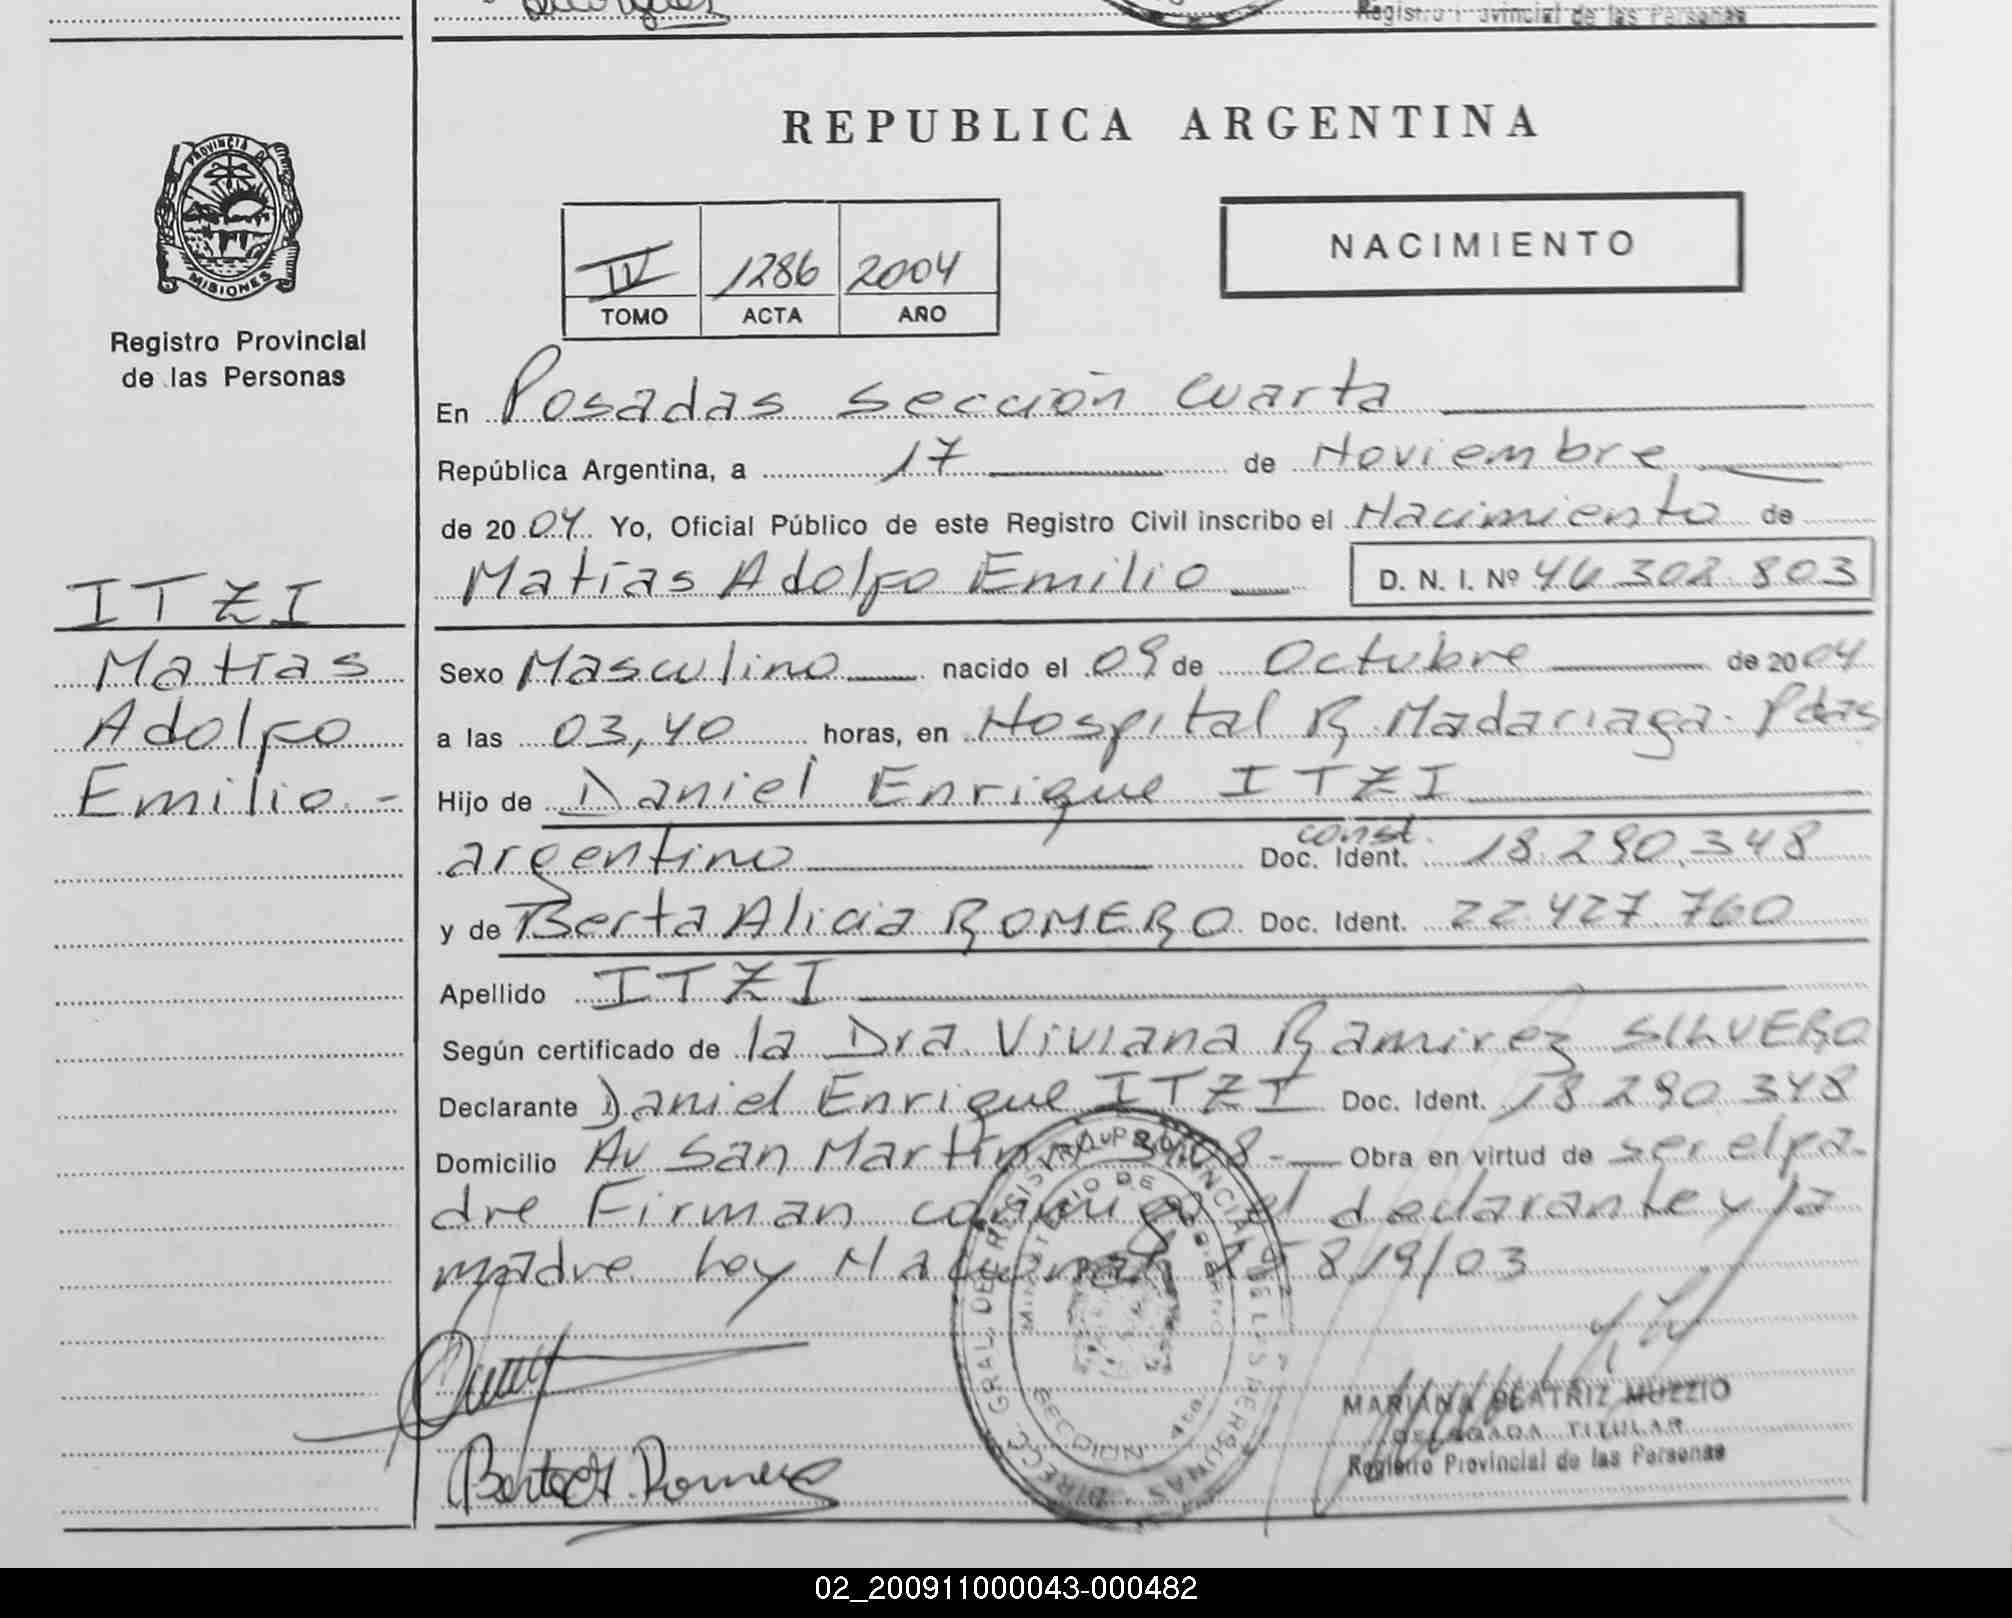 Registro Provincial de las Personas
PROVINCIA DE
MISIONES
Registro Provincial
de las Personas
ITZI
Matías
Adolfo
Emilio -
REPUBLICA ARGENTINA
IV 1286 2004
TOMO ACTA AÑO
NACIMIENTO
En Posadas Sección Cuarta
República Argentina, a 17 de Noviembre
de 2004 Yo, Oficial Público de este Registro Civil inscribo el Nacimiento de
Matías Adolfo Emilio D. N. I. Nº 46 302 803
Sexo Masculino nacido el 09 de Octubre de 2004
a las 03,40 horas, en Hospital R. Madariaga. Pdas
Hijo de Daniel Enrique ITZI
const.
argentino Doc. Ident. 18.290.348
y de Berta Alicia ROMERO Doc. Ident. 22.427.760
Apellido ITZI
Según certificado de la Dra. Viviana Ramirez SILVERO
Declarante Daniel Enrique ITZI Doc. Ident. 18 290 348
Domicilio Av San Martín Nº 3408 - Obra en virtud de ser el pa-
dre Firman conmigo el declarante y la
madre. Ley Nacional 25 819/03
DIRECC. GRAL. DEL REGISTRO PROVINCIAL DE LAS PERSONAS
MINISTERIO DE GOBIERNO
Berta A. Romero
MARIANA BEATRIZ MUZZIO
DELEGADA TITULAR
Registro Provincial de las Personas
02_200911000043-000482